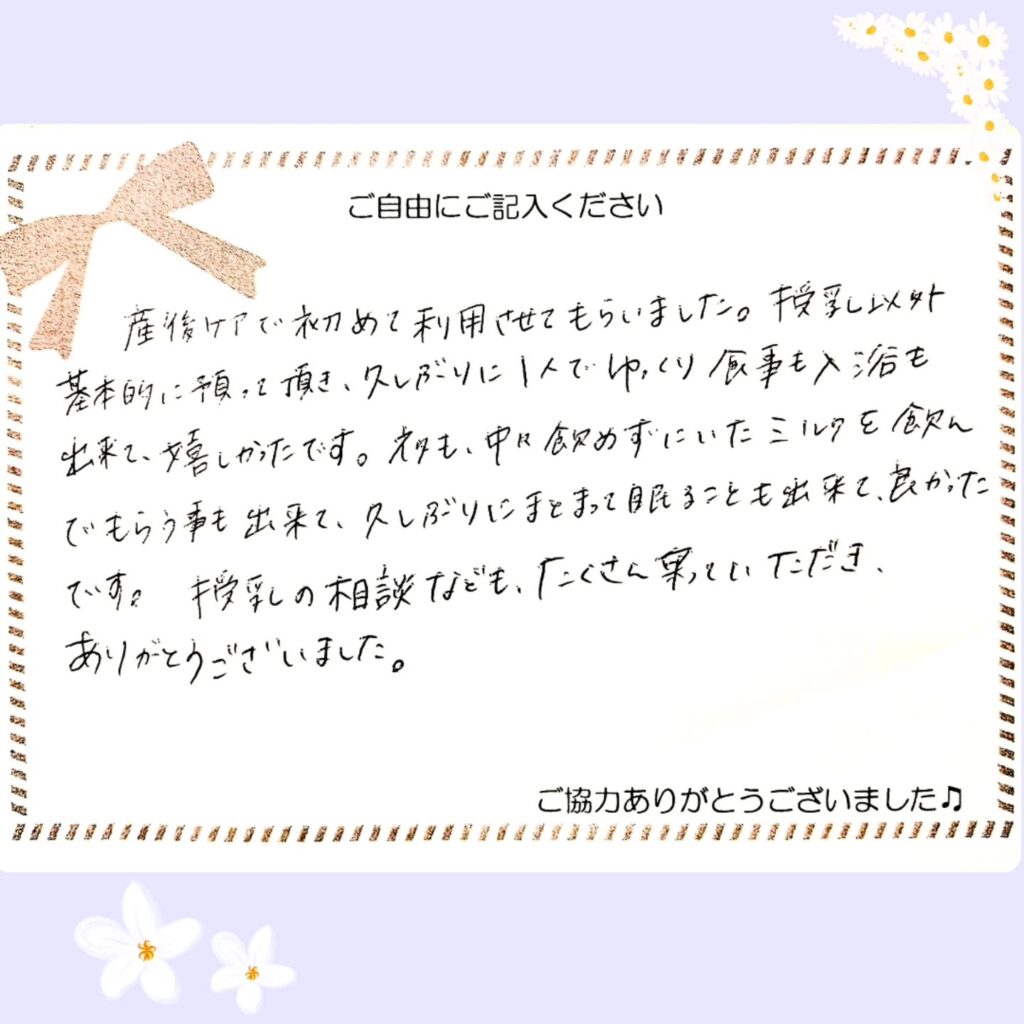 ご自由にご記入ください
産後ケアで初めて利用させてもらいました。授乳以外
基本的に預って頂き、久しぶりに1人でゆっくり食事も入浴も
出来て、嬉しかったです。夜も、中々飲めずにいたミルクを飲ん
でもらう事も出来て、久しぶりにまとまって眠ることも出来て、良かった
です。 授乳の相談なども、たくさん乗っていただき、
ありがとうございました。
ご協力ありがとうございました♫